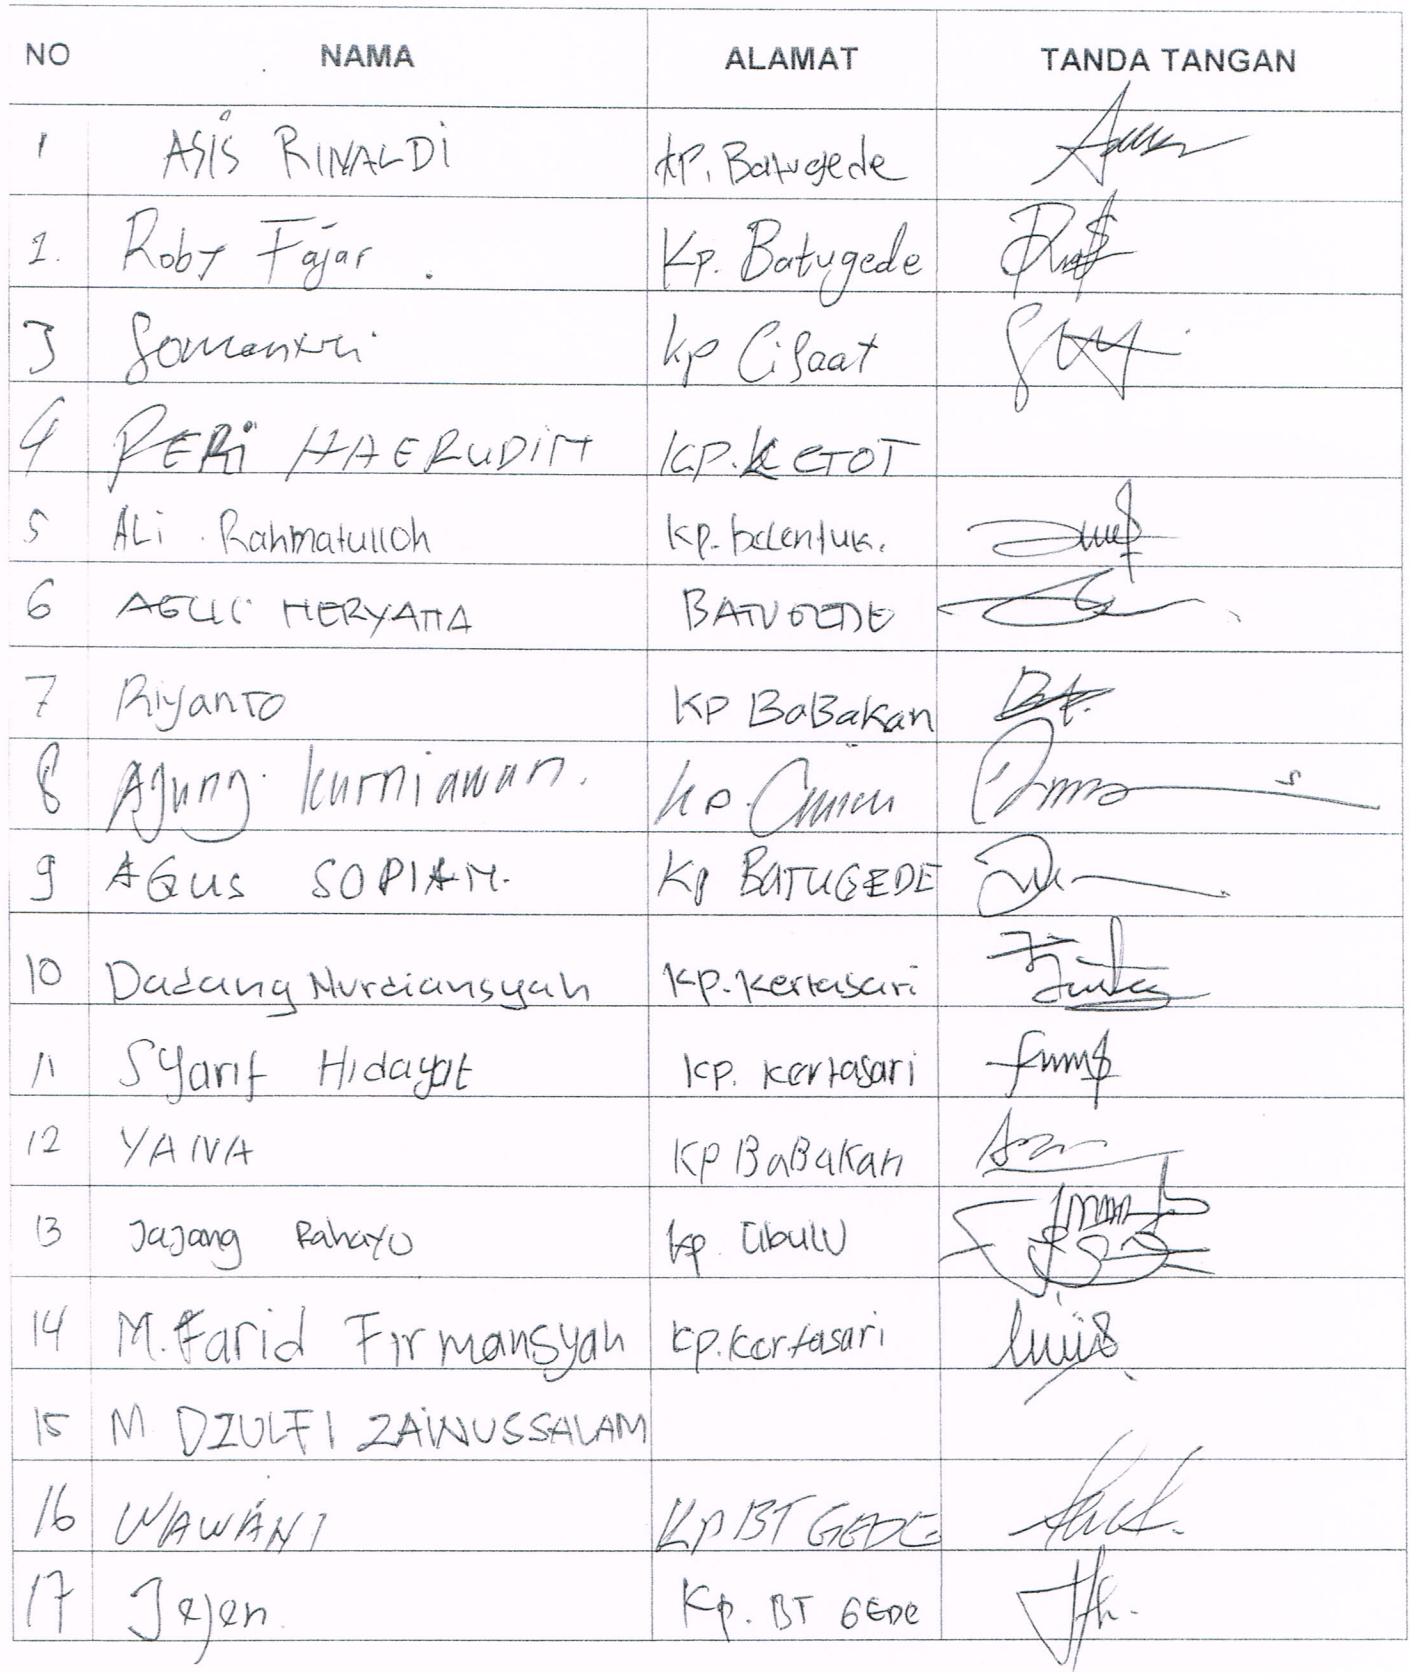 NO NAMA ALAMAT TANDA TANGAN
1 ASIS RINALDI KP. Batugede
2. Roby Fajar. Kp. Batugede
3 Somantri kp Cisaat
4 PERI HAERUDIN KP. KETOT
5 ALi. Rahmatulloh Kp. belentuk.
6 AGUS HERYANA BATUGEDE
7 Riyanto KP BaBaKan
8 Agung kurniawan. kp.
9 AGUS SOPIAN. Kp BATUGEDE
10 Dadang Nurdiansyah Kp. Kertasari
11 Syarif Hidayat Kp. Kertasari
12 YANA KP BaBaKan
13 Jajang Rahayu kp. Cibulu
14 M. Farid Firmansyah Kp. Kertasari
15 M DZULFI ZAINUSSALAM
16 WAWAN Kp BT GEDE
17 Jejen Kp. BT GEDE